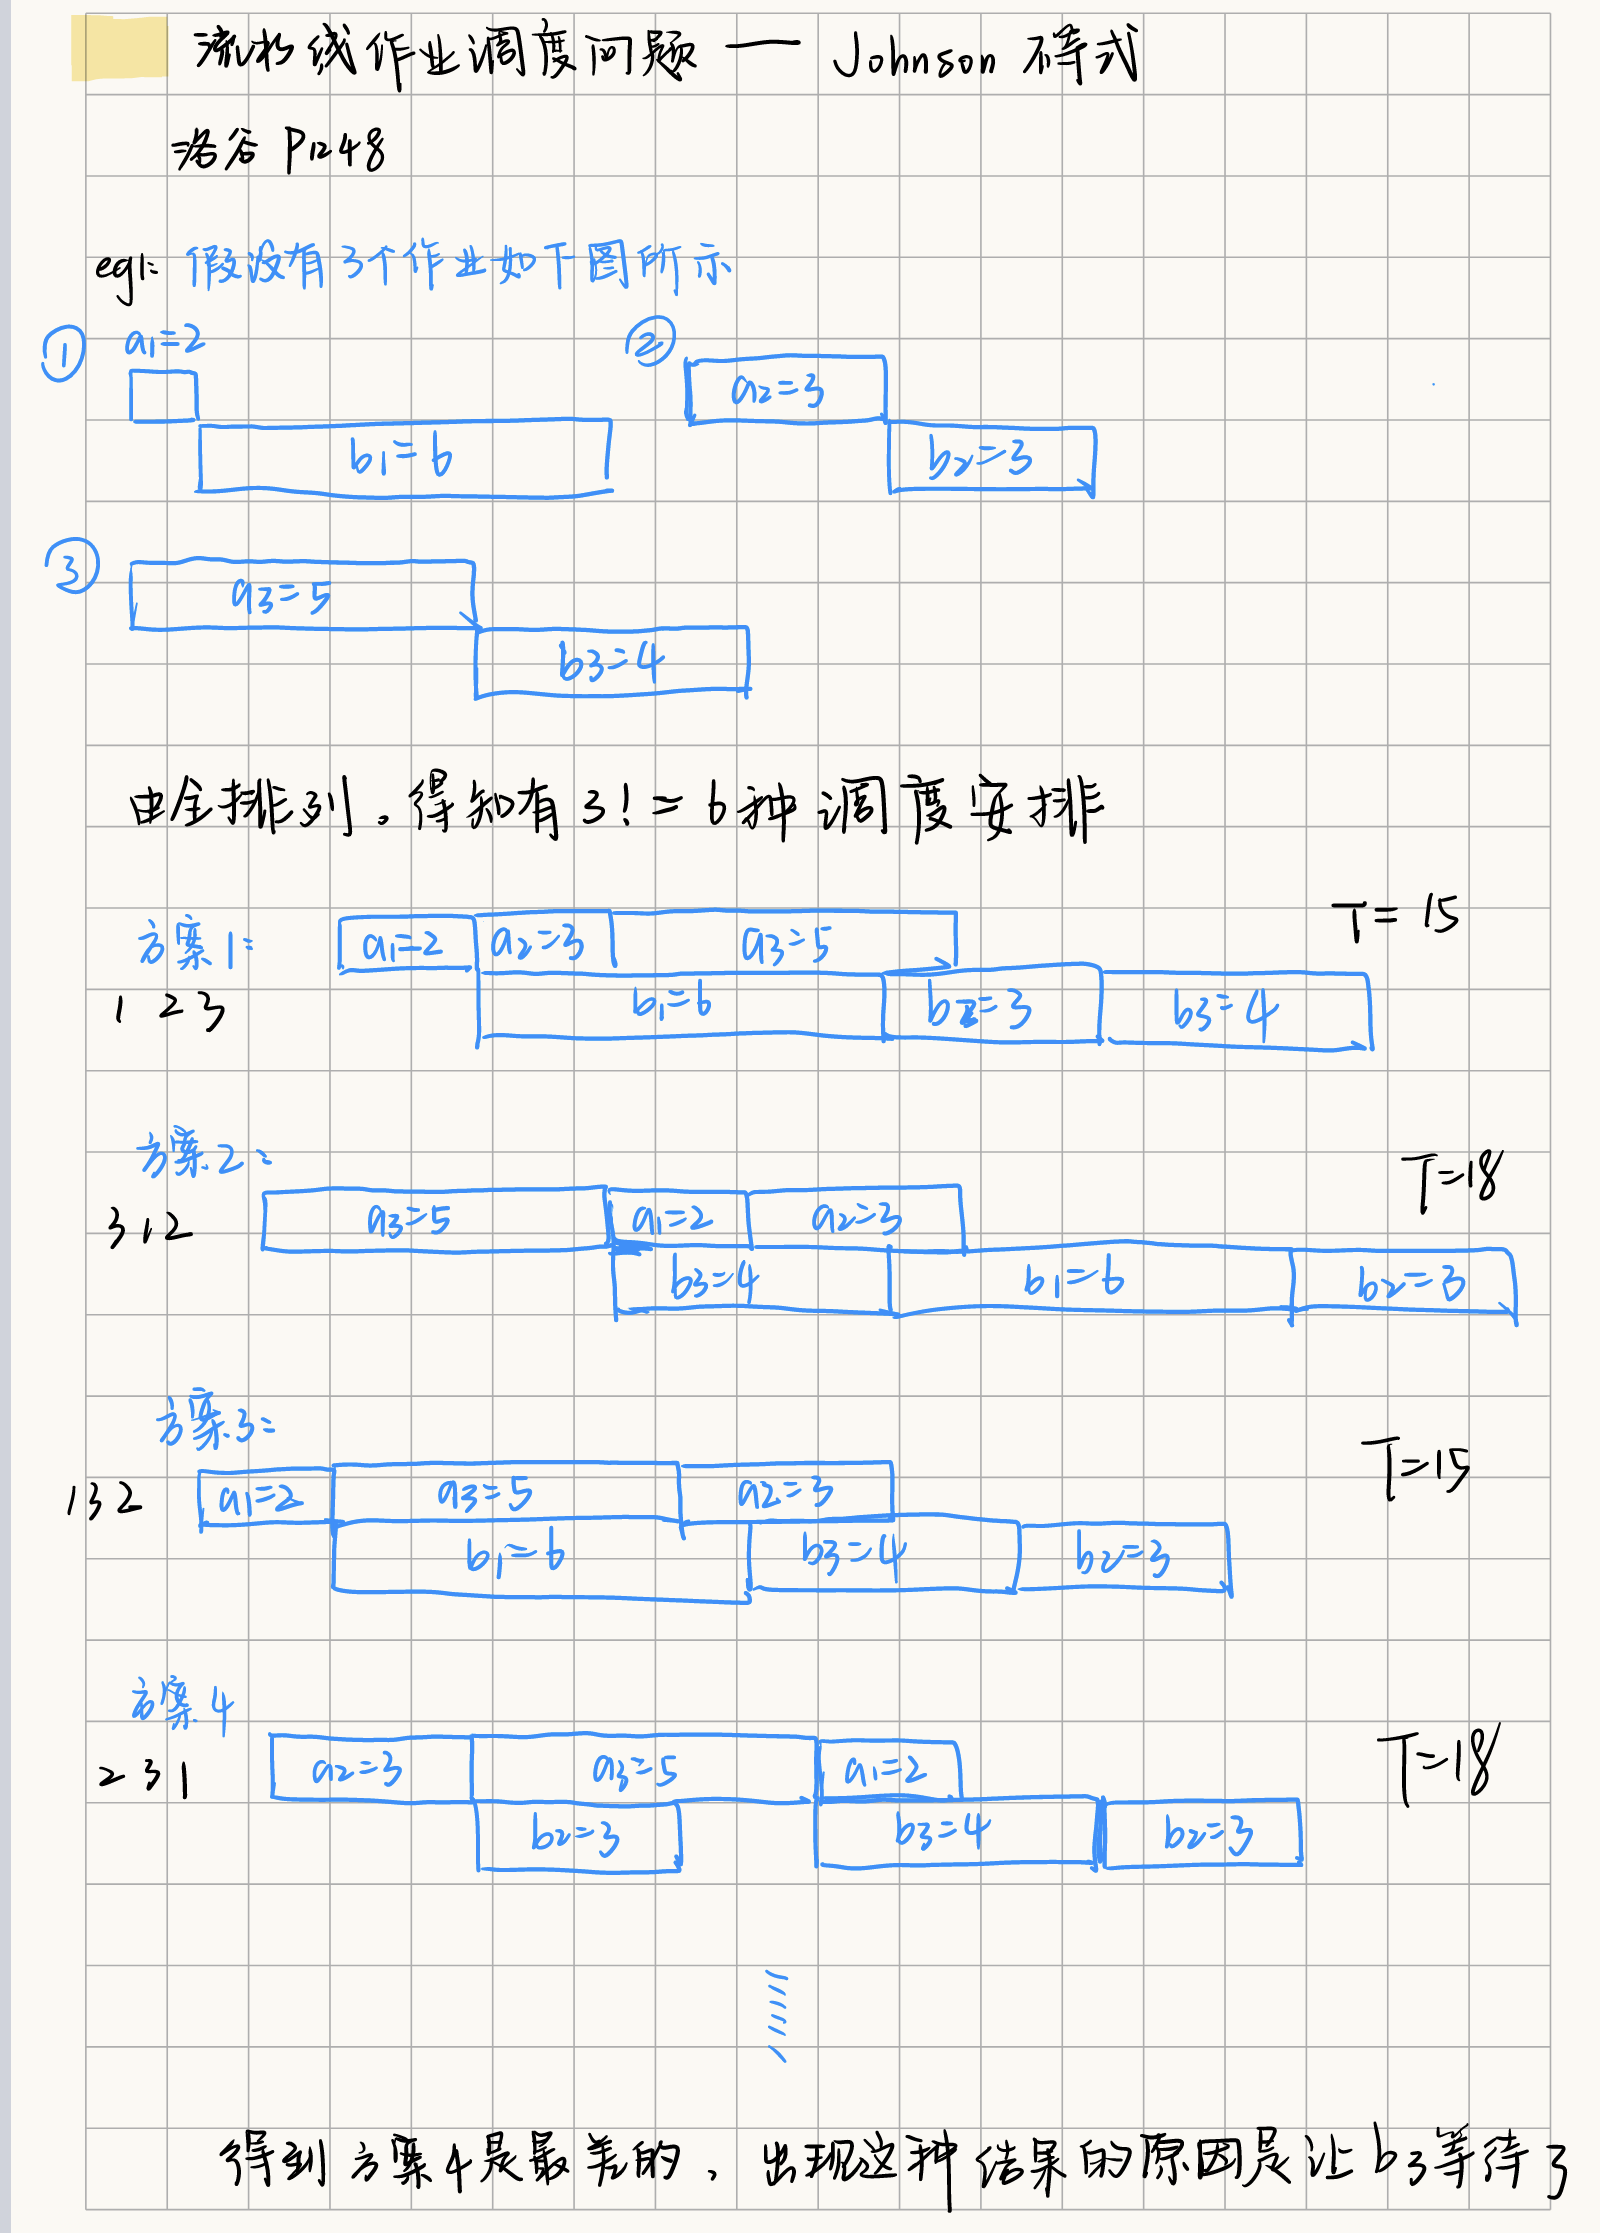 流水线作业调度问题 — Johnson 不等式
洛谷 P1248
eg1: 假设有3个作业如下图所示
① a1=2
b1=6
② a2=3
b2=3
③ a3=5
b3=4
由全排列。得知有3!=6种调度安排
方案1: a1=2 a2=3 a3=5 T=15
1 2 3 b1=6 b2=3 b3=4
方案2: T=18
3 1 2 a3=5 a1=2 a2=3
b3=4 b1=6 b2=3
方案3: T=15
1 3 2 a1=2 a3=5 a2=3
b1=6 b3=4 b2=3
方案4
2 3 1 a2=3 a3=5 a1=2 T=18
b2=3 b3=4 b2=3
得到方案4是最差的, 出现这种结果的原因是让b3等待了